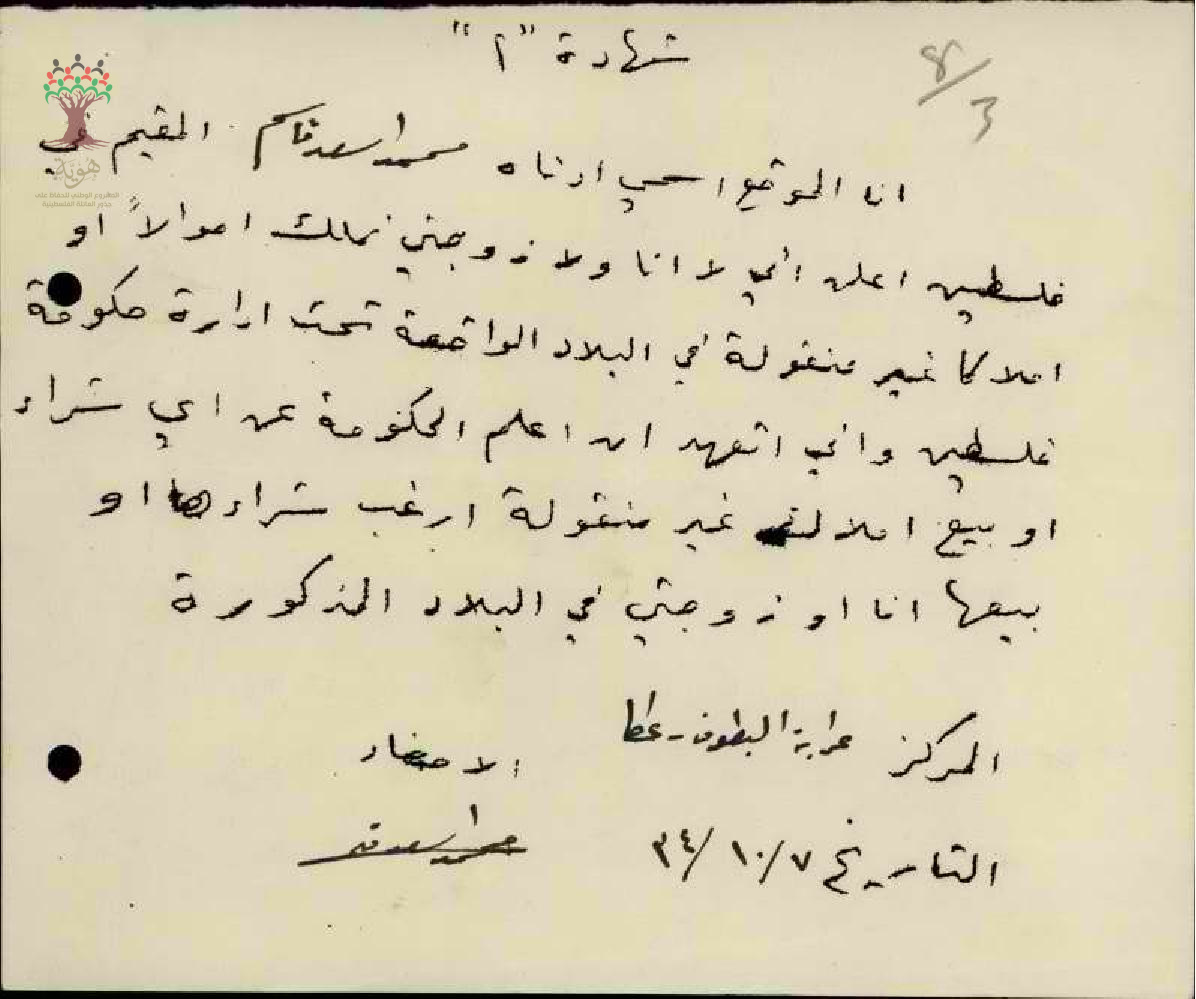 شهادة "أ"
8/3
انا الموقع اسمي ادناه محمد اسعد قاسم المقيم في
فلسطين اعلن اني لا انا ولا زوجتي نملك اموالاً او
املاكا غير منقولة في البلاد الواقعة تحت ادارة حكومة
فلسطين واني اتعهد ان اعلم الحكومة عن اي شراء
او بيع املاك غير منقولة ارغب شراءها او
بيعها انا او زوجتي في البلاد المذكورة
المركز عرابة البطوف - عكا
الامضاء
التاريخ ٧/١٠/٣٤
محمد اسعد قاسم
هوية
المشروع الوطني للحفاظ على
جذور العائلة الفلسطينية